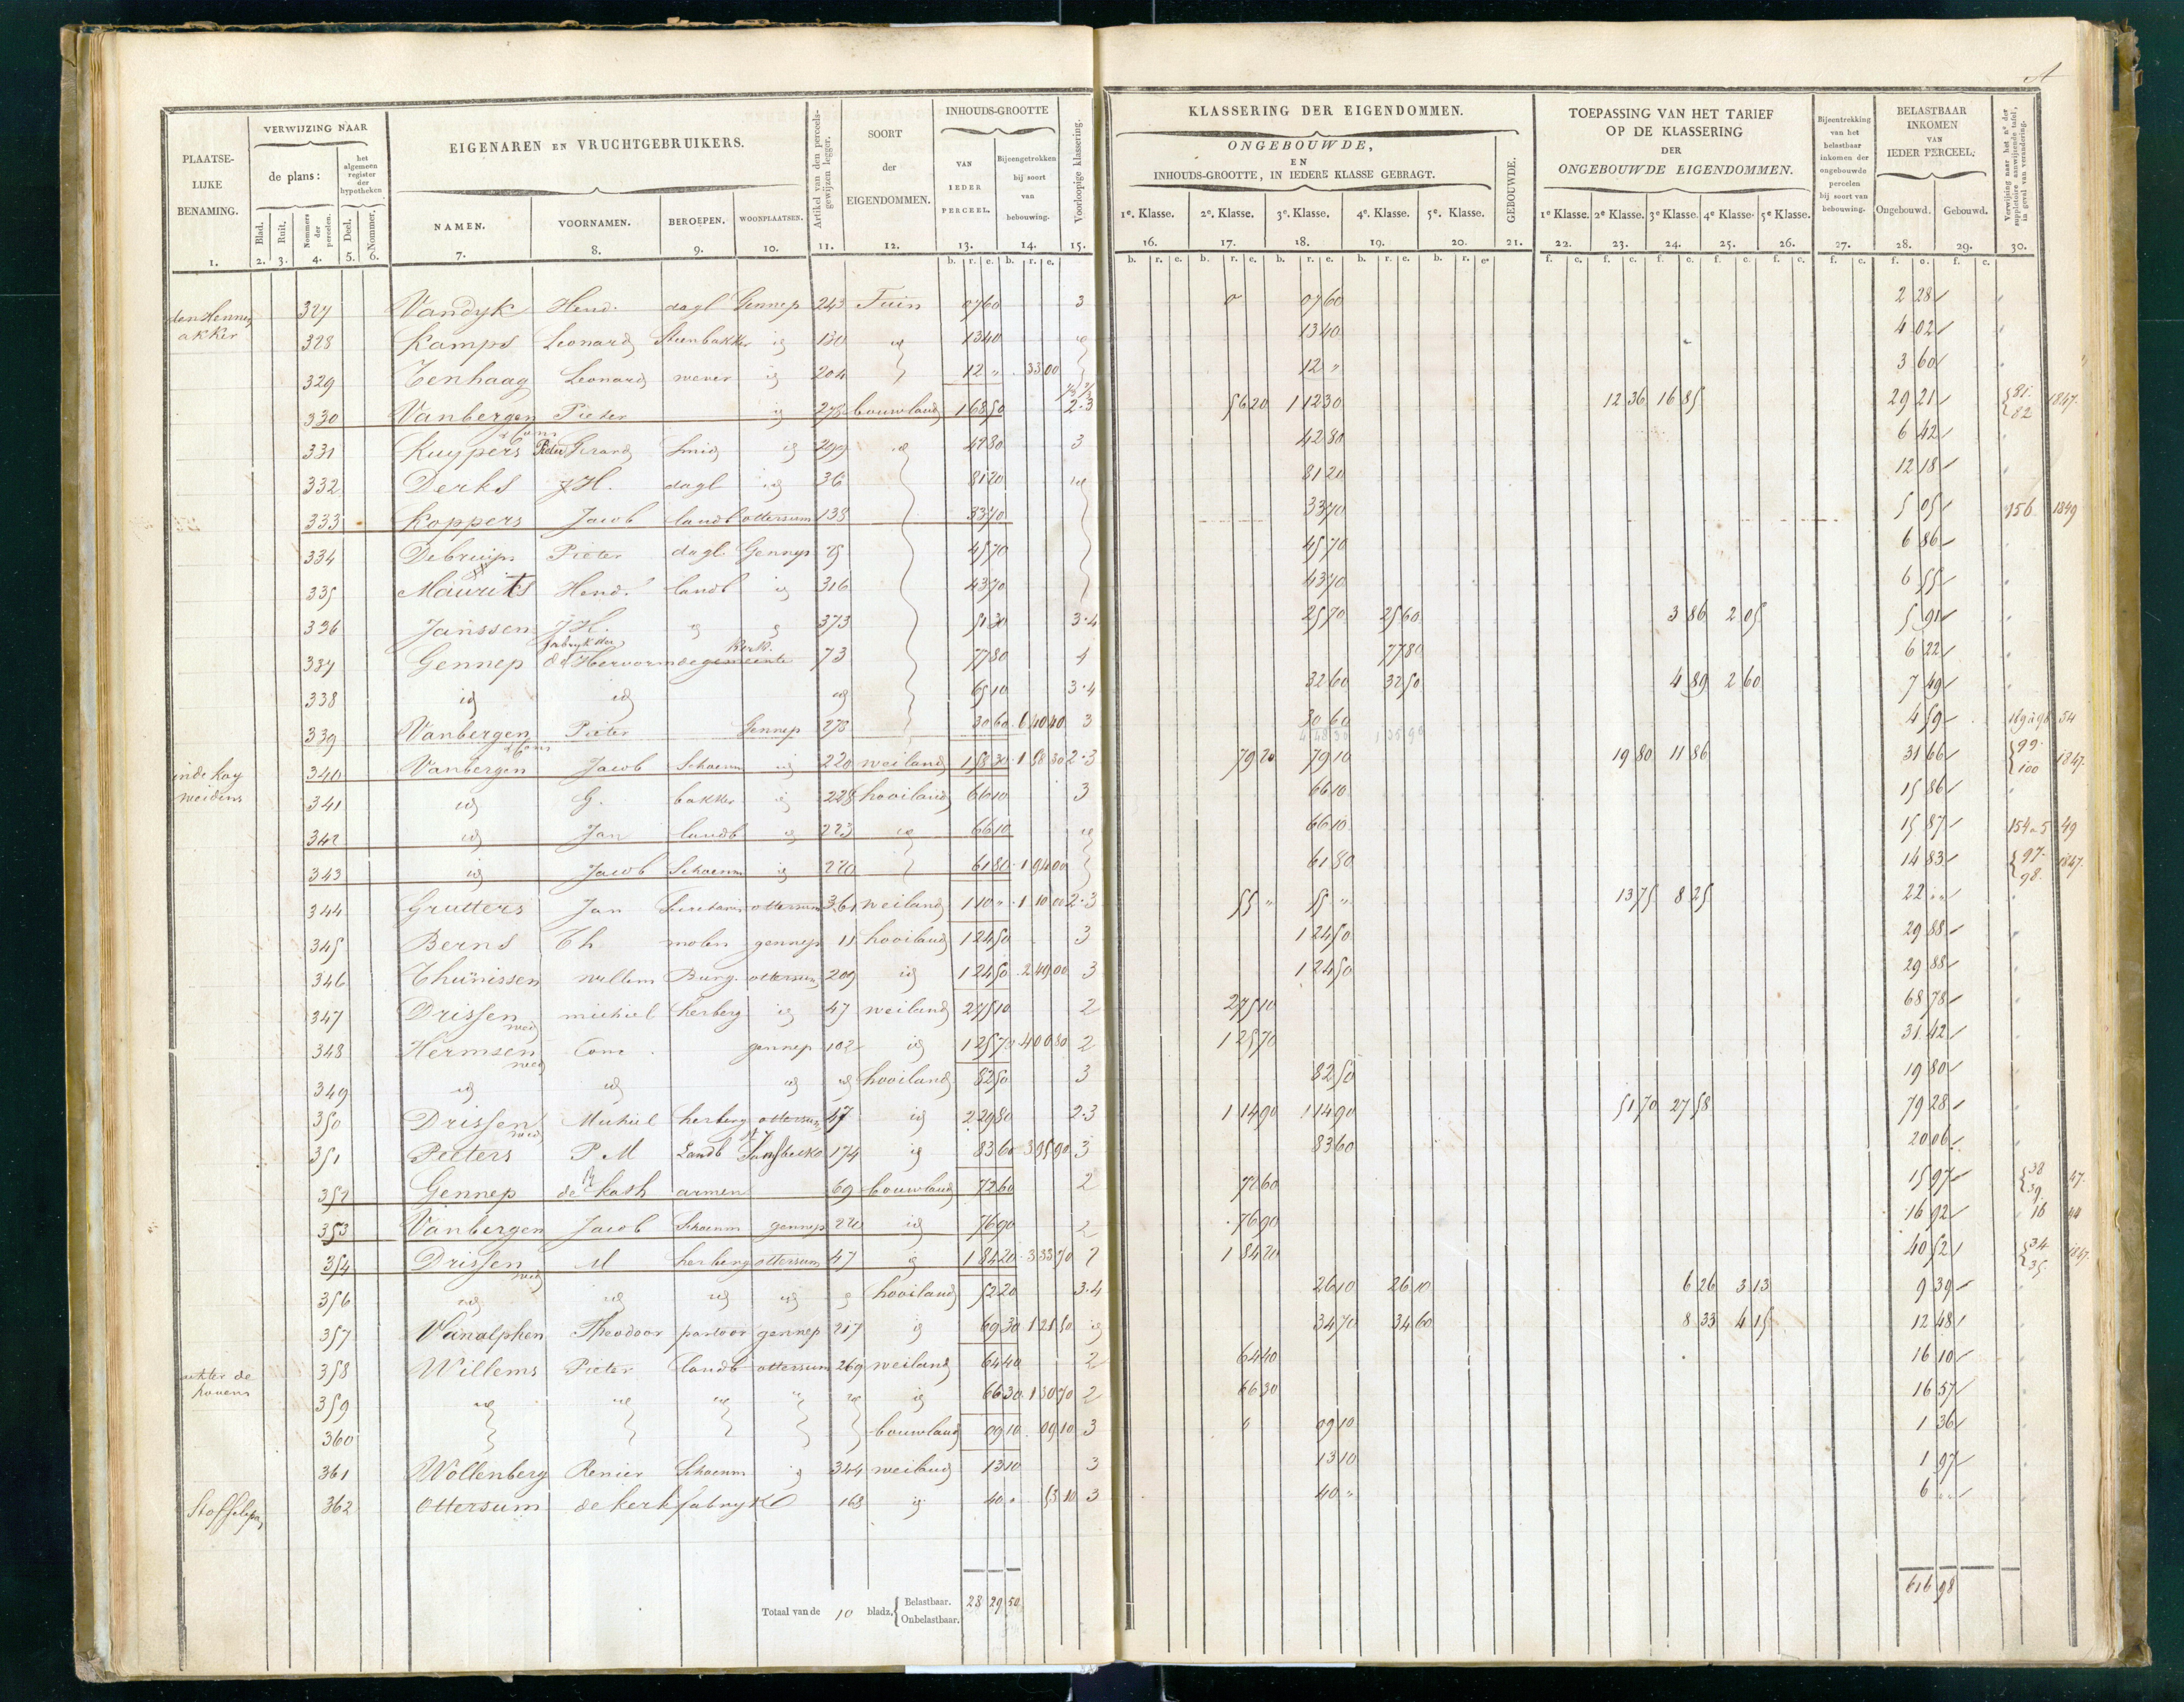 A
PLAATSE-LIJKE BENAMING. 1.
VERWIJZING NAAR
de plans:
Blad. 2. Ruit. 3. Nommers der perceelen. 4.
het algemeen register der hypotheken
Deel. 5. Nommer. 6.
EIGENAREN EN VRUCHTGEBRUIKERS.
NAMEN. 7. VOORNAMEN. 8. BEROEPEN. 9. WOONPLAATSEN. 10.
Artikel van den perceels-gewijzen legger. 11.
SOORT der EIGENDOMMEN. 12.
INHOUDS-GROOTTE
VAN IEDER PERCEEL. 13.
Bijeengetrokken bij soort van bebouwing. 14.
Voorloopige klassering. 15.
KLASSERING DER EIGENDOMMEN.
ONGEBOUWDE,
EN
INHOUDS-GROOTTE, IN IEDERE KLASSE GEBRAGT.
1e. Klasse. 16. 2e. Klasse. 17. 3e. Klasse. 18. 4e. Klasse. 19. 5e. Klasse. 20.
GEBOUWDE. 21.
TOEPASSING VAN HET TARIEF
OP DE KLASSERING
DER
ONGEBOUWDE EIGENDOMMEN.
1e Klasse. 22. 2e Klasse. 23. 3e Klasse. 24. 4e Klasse. 25. 5e Klasse. 26.
Bijeentrekking van het belastbaar inkomen der ongebouwde perceelen bij soort van bebouwing. 27.
BELASTBAAR INKOMEN VAN IEDER PERCEEL.
Ongebouwd. 28. Gebouwd. 29.
Verwijzing naar het no der suppletoire aanwijzende tafel, in geval van verandering. 30.
327 Vandyk Hend. dagl Gennep 243 Tuin 07 60 3 07 60 2 28
akker 328 Kamps Leonard Steenbakker id 130 id 13 40 id 13 40 4 02
329 Tenhaag Leonard wever id 204 12 " 33 00 12 " 3 60
330 Vanbergen Pieter id 278 bouwland 1 68 50 2.3 56 20 1 12 30 12 36 16 85 29 21 81. 82 1847.
331 Kuypers Pieter Gerard Smid id 42 80 3 42 80 6 42
332 Derks J H. dagl id 36 81 20 id 81 20 12 18
333 Koppers Jacob landb ottersum 138 33 70 33 70 5 05 156 1849
334 Debruijn Pieter dagl Gennep 45 70 45 70 6 86
335 Maurits Hend. landb id 316 43 70 43 70 6 55
336 Janssen J H. id id 373 51 30 3.4 25 70 25 60 3 86 2 05 5 91
337 Gennep fabryk der Hervormde gemeente kerk. 73 77 80 4 77 80 6 22
338 id id id 65 10 3.4 32 60 32 50 4 89 2 60 7 49
339 Vanbergen Pieter Gennep 278 30 60 6 40 40 3 30 60 4 59 54
inde kay weidens 340 Vanbergen Jacob Schoenm id 220 weiland 1 58 30 1 58 30 2.3 79 20 79 10 19 80 11 86 31 66 99. 100 1847.
341 id G. bakker id 228 hooiland 66 10 3 66 10 15 86
342 id Jan landb id 223 id 66 10 id 66 10 15 87 154 a 5 49
343 id Jacob Schoenm id 220 61 80 1 94 00 61 80 14 83 97. 98. 1847.
344 Grutters Jan Secretaris ottersum 361 weiland 1 10 " 1 10 00 2.3 55 " 55 " 13 75 8 25 22 ""
345 Berns Th molen gennep 11 hooiland 1 24 50 3 1 24 50 29 88
346 Thunissen willem Burg. ottersum 209 id 1 24 50 2 49 00 3 1 24 50 29 88
347 Drissen wed michiel herberg id 47 weiland 2 75 10 2 2 75 10 68 78
348 Hermsen wed Conr. gennep 102 id 1 25 70 4 00 80 2 1 25 70 31 42
349 id id id id hooiland 82 50 3 82 50 19 80
350 Drissen wed Michiel herberg ottersum 47 id 2 29 80 2.3 1 14 90 1 14 90 51 70 27 58 79 28
351 Peeters P. M Landb 174 id 83 60 3 95 90 3 83 60 20 06
352 Gennep de R kath armen 69 bouwland 72 60 2 72 60 15 97 38 39. 47.
353 Vanbergen Jacob Schoenm gennep 220 id 76 90 2 76 90 16 92 16 44
354 Drissen wed M herberg ottersum 47 id 1 84 20 3 33 70 2 1 84 20 40 52 34. 35. 1847.
356 id id id id id hooiland 52 20 3.4 26 10 26 10 6 26 3 13 9 39
357 Vanalphen Theodoor pastoor gennep 217 id 69 30 1 21 50 id 34 70 34 60 8 33 4 15 12 48
achter de hovens 358 Willems Pieter landb ottersum 269 weiland 64 40 2 64 40 16 10
359 id id id " id id 66 30 1 30 70 2 66 30 16 57
360 bouwland 09 10 09 10 3 09 10 1 36
361 Wollenberg Renier Schoenm id 344 weiland 13 10 3 13 10 1 97
362 Ottersum de kerkfabryk 163 id 40 " 53 10 3 40 " 6 ""
Totaal van de 10 bladz. { Belastbaar. 28 29 50
Onbelastbaar.
616 98